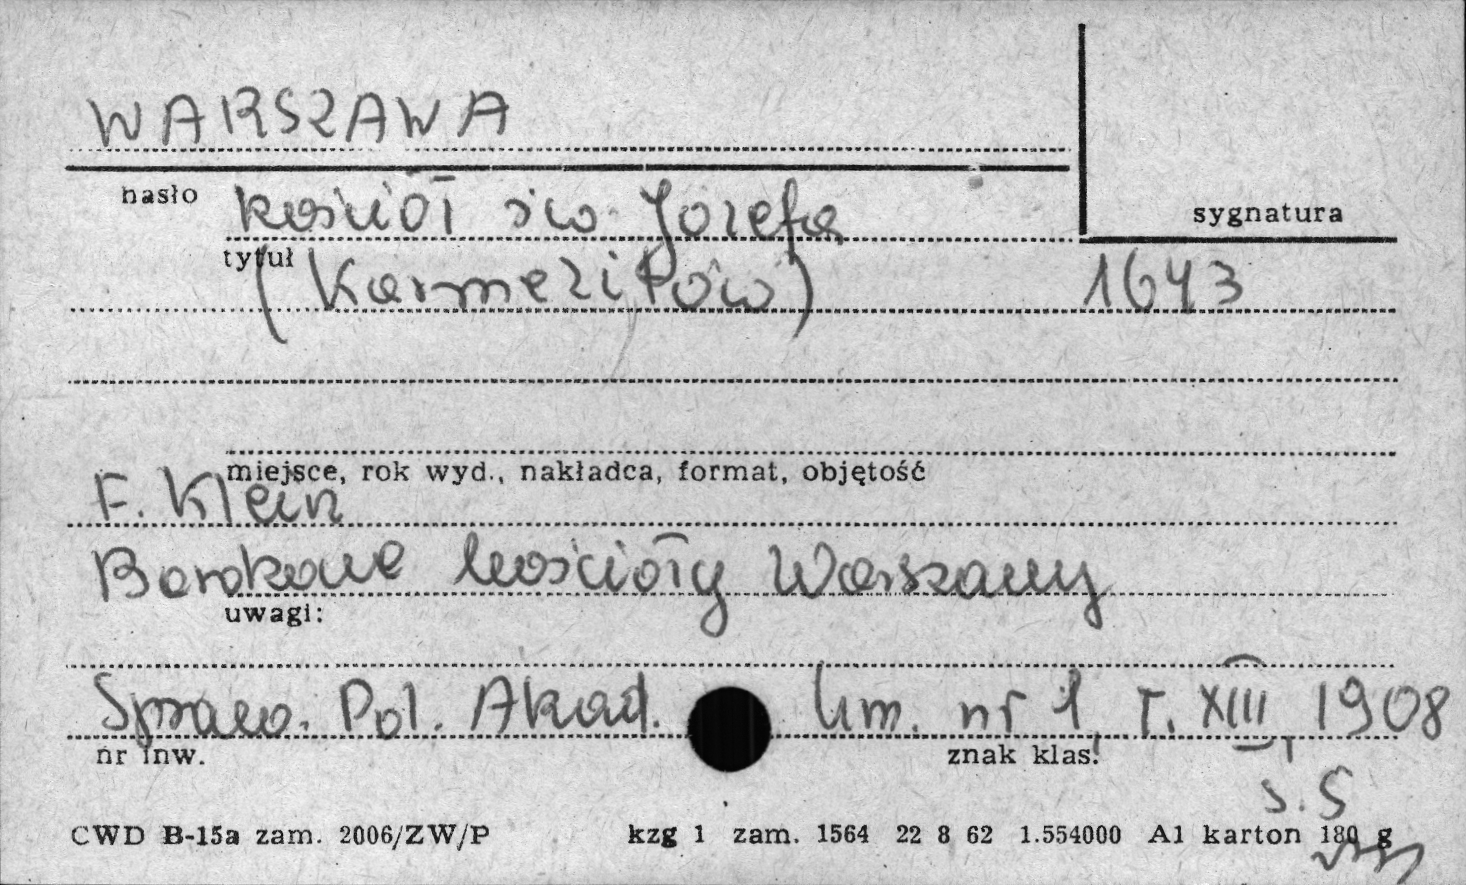 WARSZAWA
hasło
kościół św. Józefa
sygnatura
tytuł
(Karmelitów)
1643
miejsce, rok wyd., nakładca, format, objętość
F. Klein
Barokowe kościoły Warszawy
uwagi:
Spraw. Pol. Akad. Um. nr 1, T. XIII, 1908
nr inw.
znak klas.
s. 5
CWD B-15a zam. 2006/ZW/P kzg 1 zam. 1564 22 8 62 1.554000 A1 karton 180 g